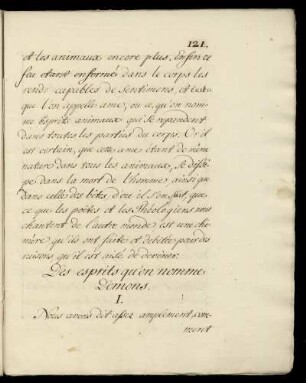 121.
et les animaux encore plus. Enfin ce
feu etant enfermé dans le corps les
rend capables de sentimens, et c'est
que l'on appelle ame, ou ce qu'on nom-
me Esprits animaux qui se repandent
dans toutes les parties du corps. Or il
est certain, que cette ame étant de même
nature dans tous les animaux, se dissi-
pe dans la mort de l'homme ainsi que
dans celle des bêtes, d'ou il s'en suit, que
ce que les poëtes et les Théologiens nous
chantent de l'autre monde est une chi-
mère qu'ils ont faite et debitée pour des
raisons qu'il est aisé de deviner.
Des esprits qu'on nomme
Démons.
I.
Nous avons dit assez amplement com-
ment